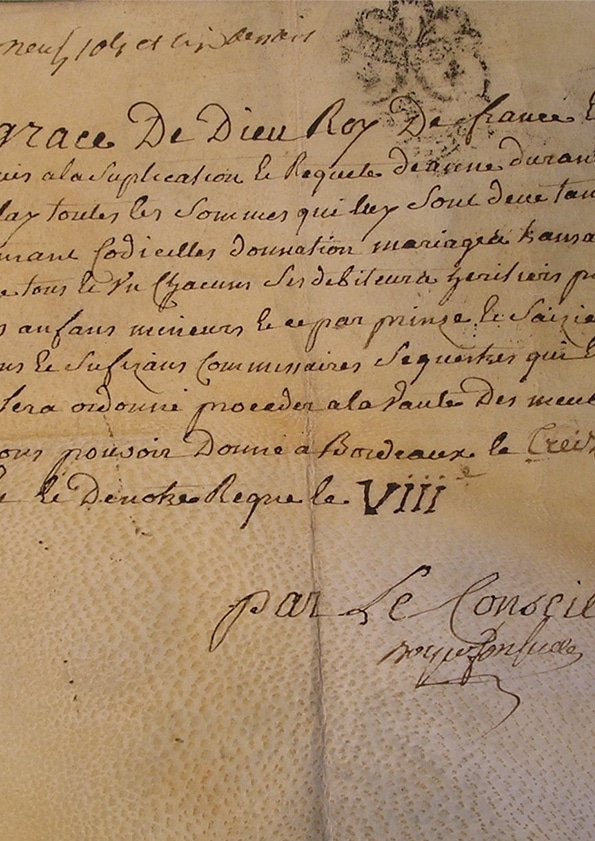 neuf sols et six deniers
grace De Dieu Roy De france E
ala Suplication Ee Requete deanne duran
toutes les Sommes qui luy Sont deue tan
Codicelles donnation mariage
tous Ee Un Chacuns Ses debiteurs heritiers p
anfans mineurs Ee ce par prinze Ee Saizie
Ee Sufizans Commissaires Sequestres qui
Sera ordonné proceder ala vante Des meu
pouvoir Donné a Bordeaux le Trei
Ee Denotre Regne le VIII e
par Le Conseil